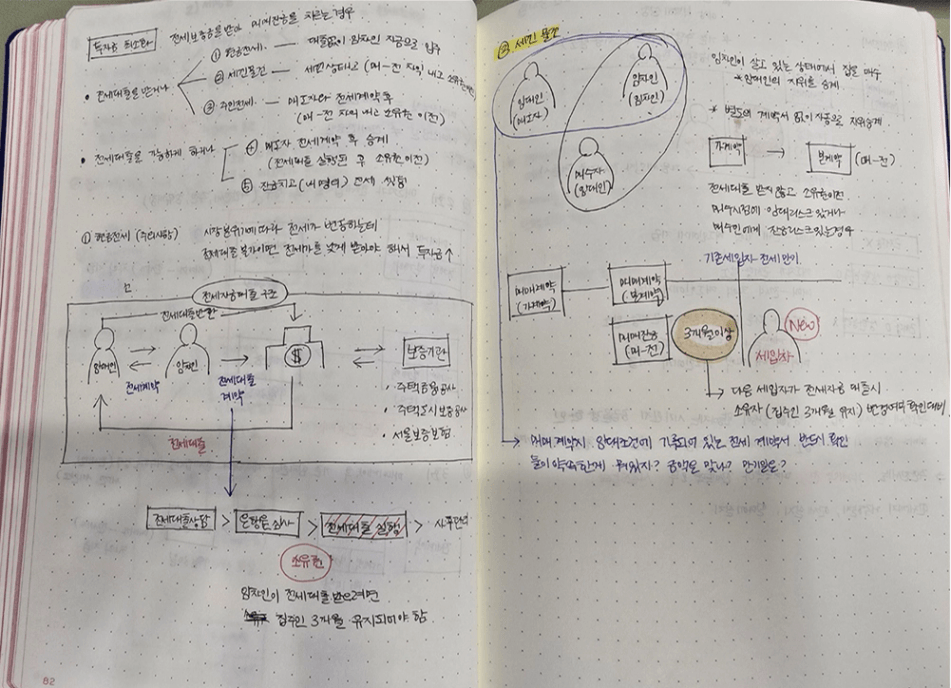 투자금 최소화
전세보증금을 받아 매매잔금을 치르는 경우
• 전세대출을 받거나
① 현금전세. — 대출없이 임차인 자금으로 입주
② 세낀물건 — 세낀상태로 (매-전 차액) 내고 소유권이전
③ 주인전세. — 매도자와 전세계약 후
(매-전 차액 내고 소유권 이전)
• 전세대출을 가능하게 하거나
④ 매도자 전세계약 후 승계
(전세대출 실행된 후 소유권이전)
⑤ 잔금치고 (내명의) 전세 세팅
① 현금전세 (주의사항)
시장분위기에 따라 전세가 변동하는데
전세대출불가이면 전세가를 낮게 받아야 해서 투자금↑
전세자금대출 구조
전세대출반환
임대인
임차인
$
보증기관
전세계약
전세대출
계약
• 주택금융공사
• 주택도시보증공사
• 서울보증보험
전세대출
전세대출상담 > 은행문심사 > 전세대출 실행 >
소유권
임차인이 전세대출 받으려면
집주인 3개월 유지되어야 함.
82
② 세낀 물건
임대인
(매도자)
임차인
(임차인)
매수자
(임대인)
임차인이 살고 있는 상태에서 집을 매수
* 임대인의 지위를 승계
* 별도의 계약서 없이 자동으로 지위승계
가계약 → 본계약 (매-전)
전세대출 받지 않고 소유권이전
매수시점에 임대리스크 있거나
매수인에게 잔금리스크 있는경우
기존세입자 전세만기
매매계약
(가계약)
매매계약
(본계약)
매매잔금
(매-전)
3개월이상
New
세입자
다음 세입자가 전세자금 대출시
소유자 (집주인 3개월 유지) 변경여부 확인대비
→ 매매 계약시 임대조건에 기록되어 있는 전세 계약서 반드시 확인
둘이 약속한게 뭐였지? 금액은 맞나? 만기일은?